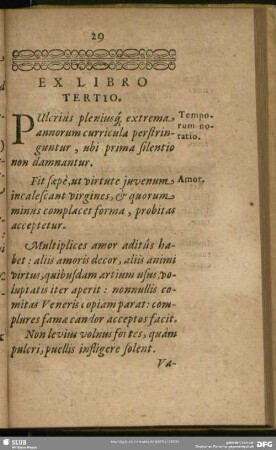 29
EX LIBRO
TERTIO.
PUlcrius pleniusq́ extrema
annorum curricula perstrin-
guntur, ubi prima silentio
non damnantur.
Tempo-
rum no-
tatio.
Fit sæpè, ut virtute juvenum
incalescant virgines, & quorum
minus complacet forma, probitas
acceptetur.
Amor.
Multiplices amor aditûs ha-
bet: aliis amoris decor, alii animi
virtus, quibusdam artium usus, vo-
luptatis iter aperit: nonnullis co-
mitas Veneris copiam parat: com-
plures famæ candor acceptos facit.
Non levius volnus fortes, quàm
pulcri, puellis infligere solent.
Va-
SLUB
DFG